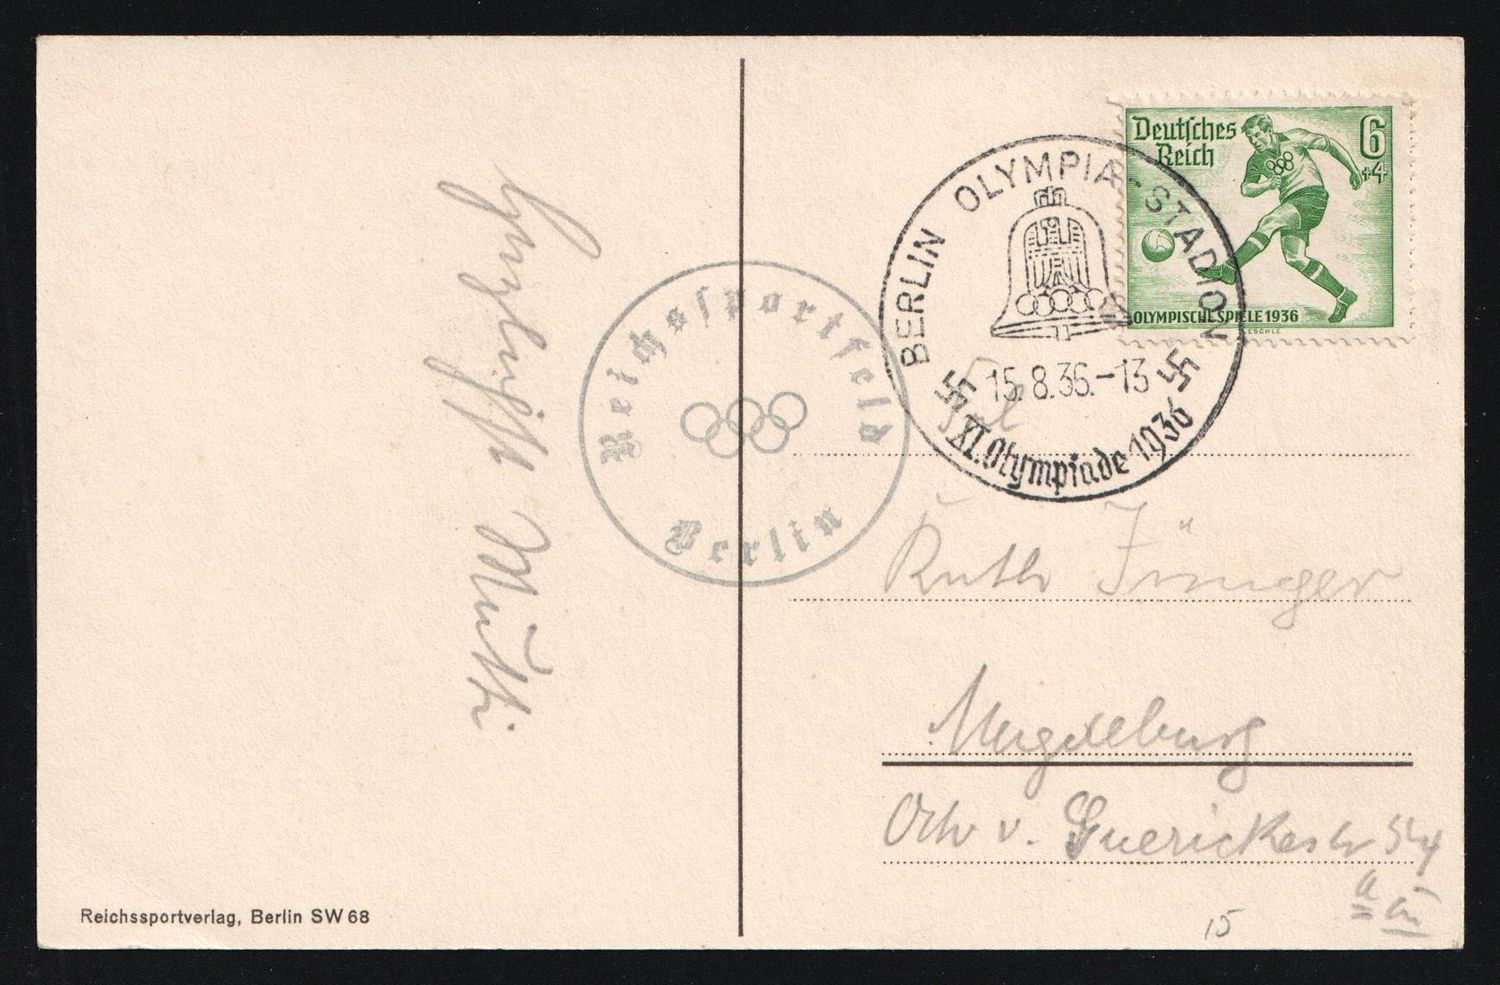 Herzlichst Mutti
Reichssportfeld
Berlin
Reichssportverlag, Berlin SW 68
Deutsches
Reich
6
+4
OLYMPISCHE SPIELE 1936
BERLIN OLYMPIA-STADION
15.8.36.-13
XI. Olympiade 1936
Ruth Jünger
Magdeburg
Otto v. Guerickestr 54
15